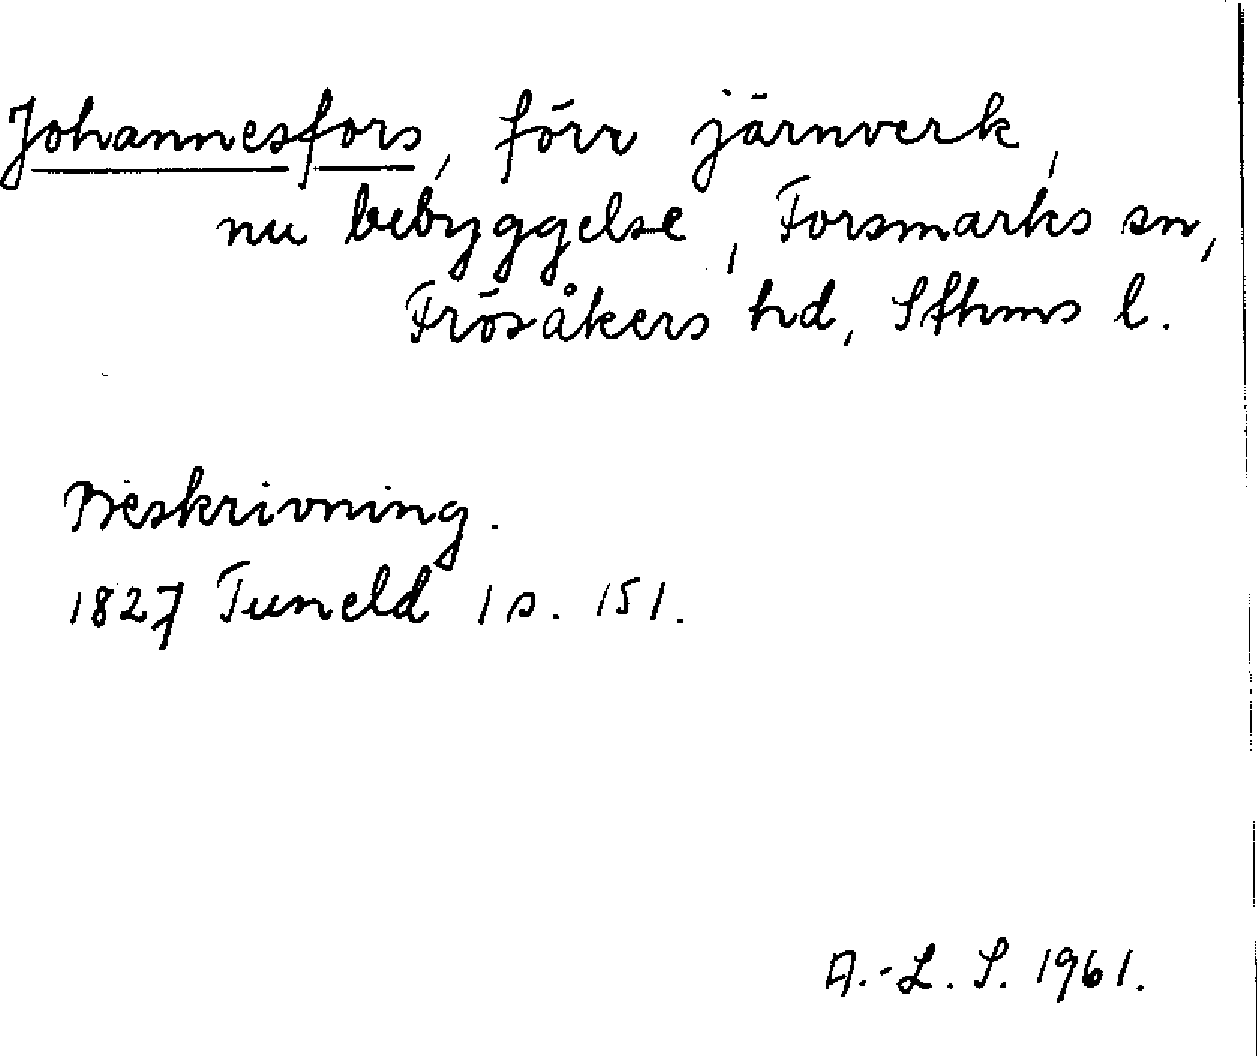 Johannesfors, förr järnverk,
nu bebyggelse, Forsmarks sn,
Frösåkers hd, Sthms l.
Beskrivning.
1827 Tuneld 1 s. 151.
A.-L. S. 1961.